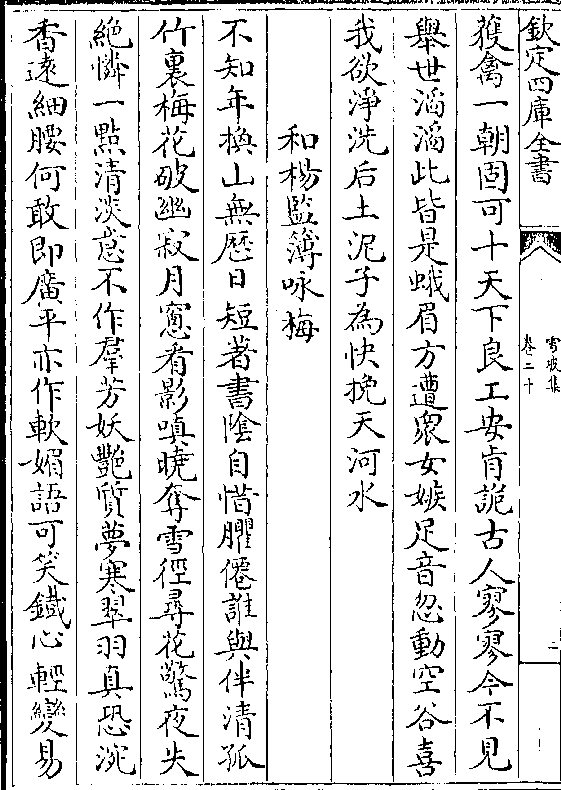 欽定四庫全書
雪坡集
卷二十
二
獲禽一朝固可十天下良工安肯詭古人寥寥今不見
舉世滔滔此皆是蛾眉方遭衆女嫉足音忽動空谷喜
我欲淨洗后土泥子為快挽天河水
和楊監簿咏梅
不知年換山無歷日短著書陰自惜臞僊誰與伴清孤
竹裏梅花破幽寂月窻看影嗔曉奪雪徑尋花驚夜失
絶憐一點清淡意不作羣芳妖艷質夢寒翠羽真恐涴
香遠細腰何敢即廣平亦作軟媚語可笑鐵心輕變易